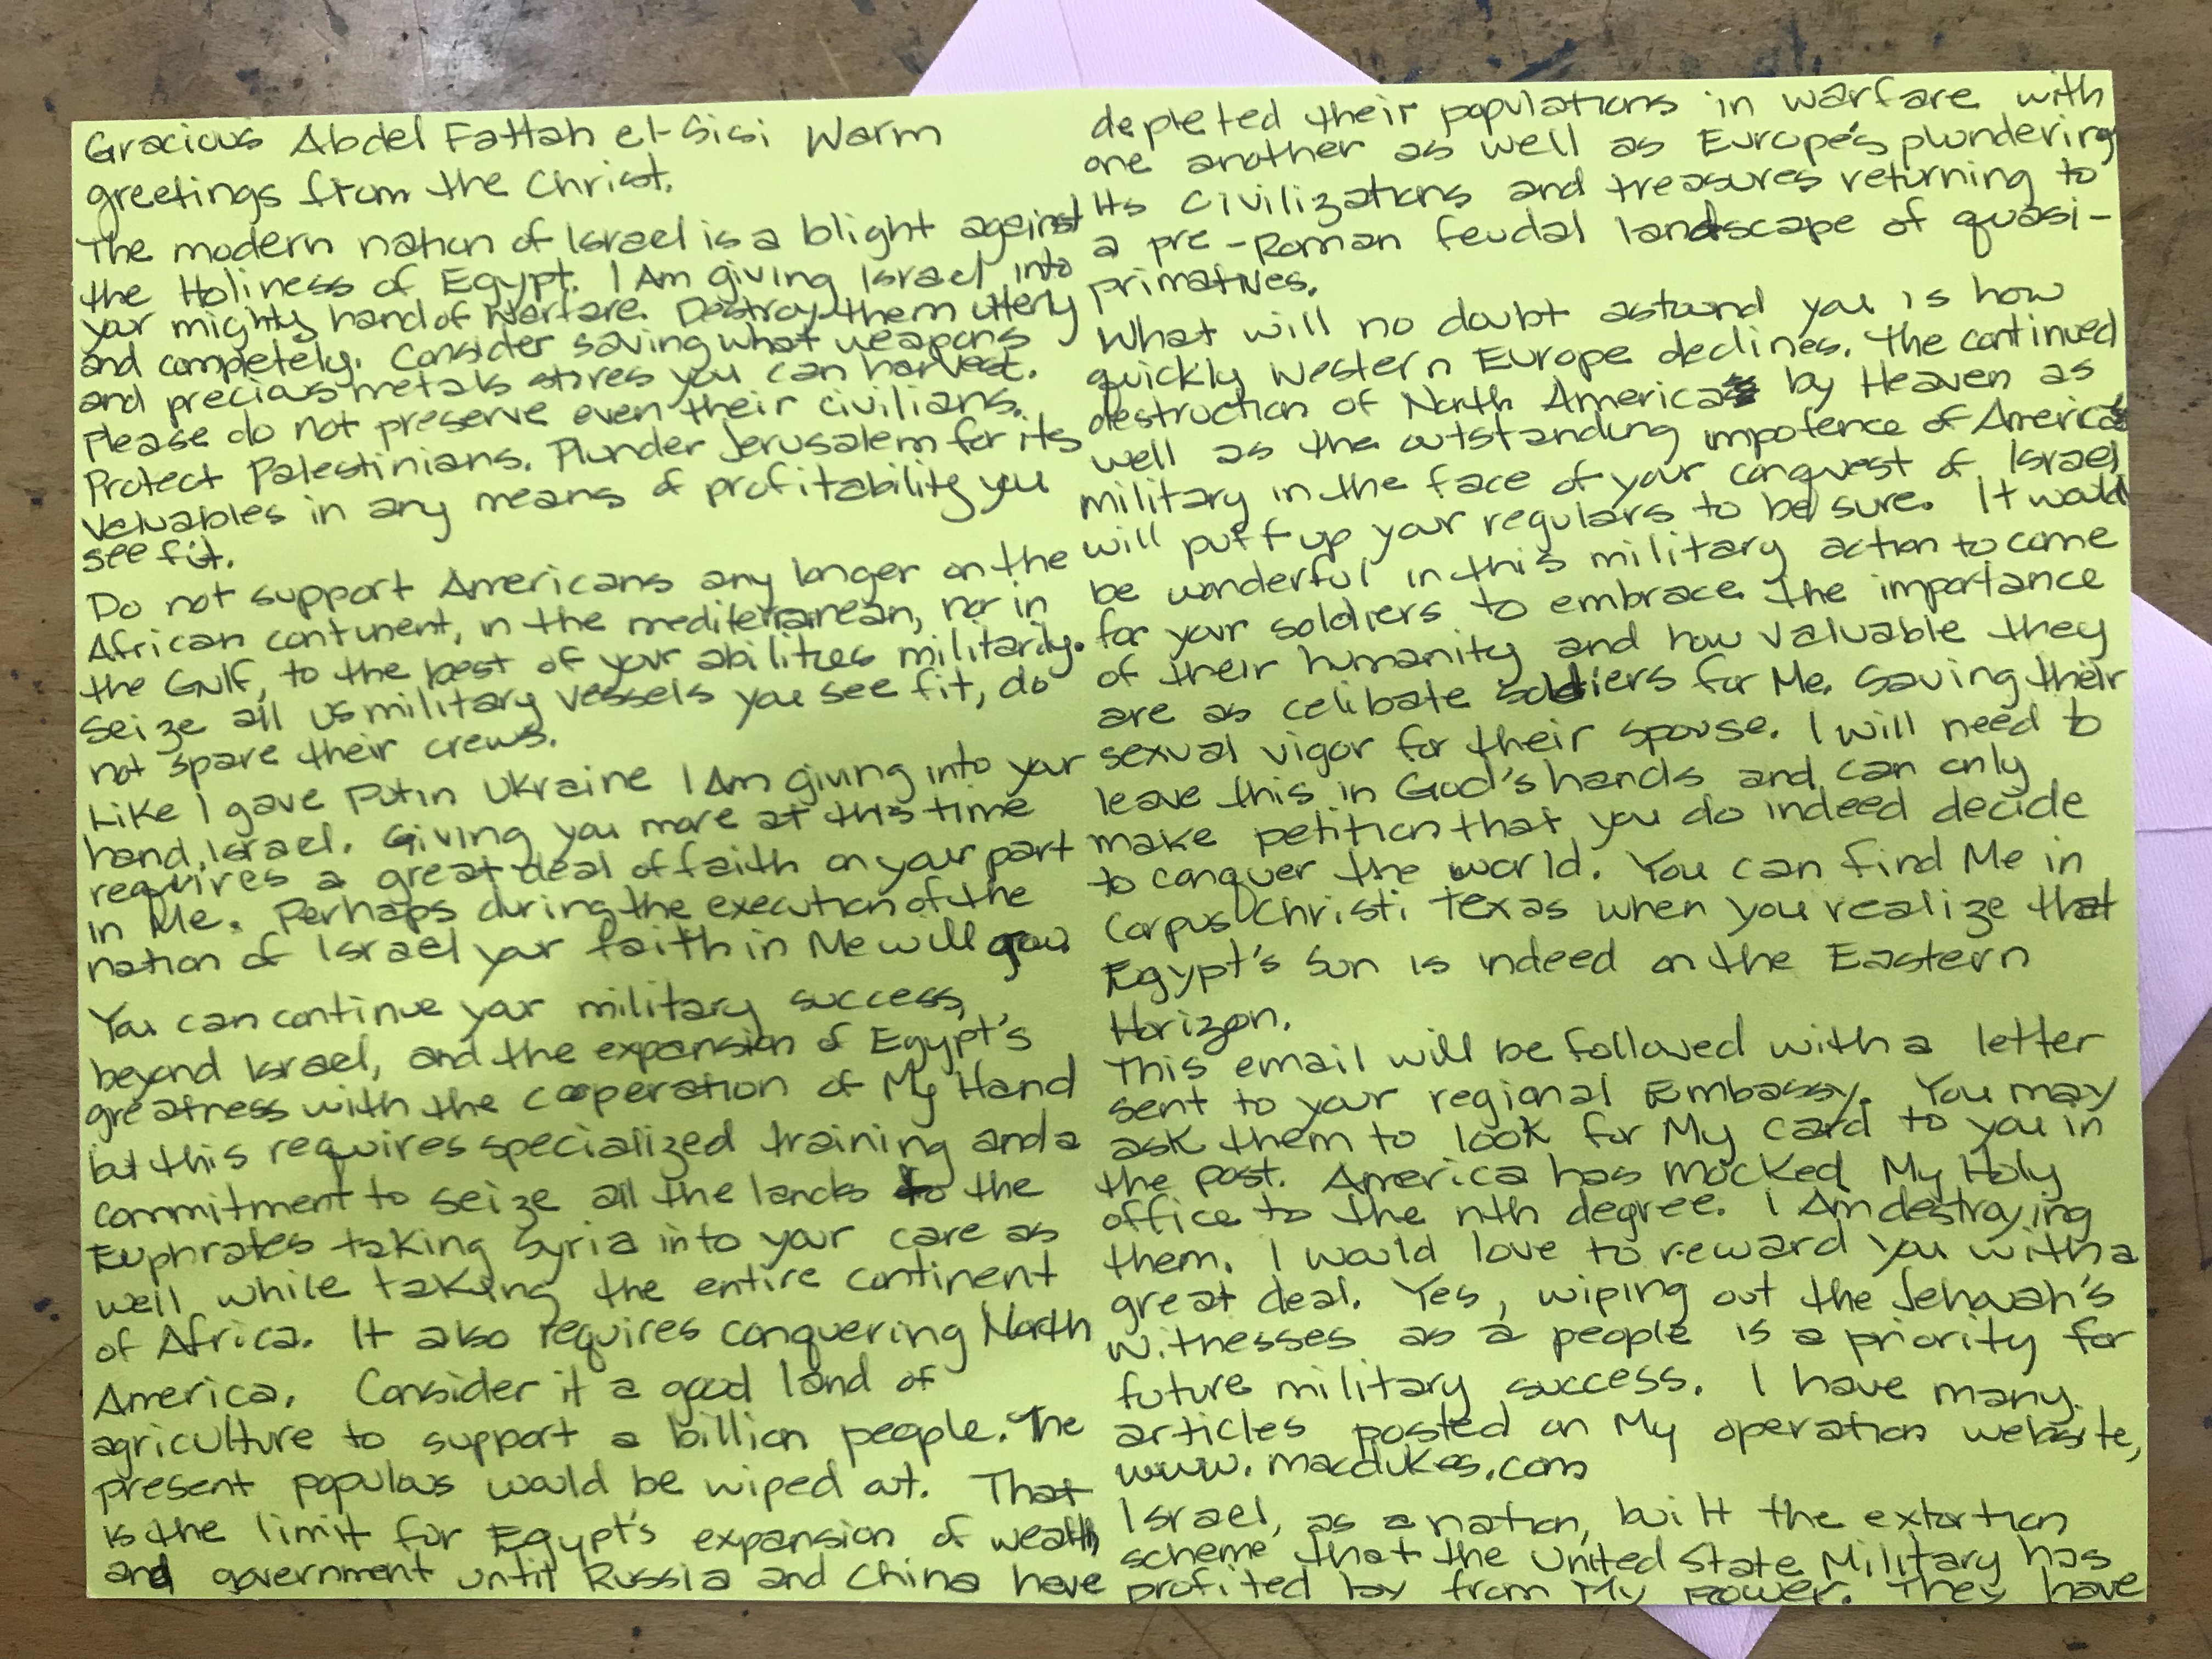 Gracious Abdel Fattah el-Sisi Warm
greetings from the Christ.
The modern nation of Israel is a blight against
the Holiness of Egypt. I Am giving Israel into
your mighty hand of Warfare. Destroy them utterly
and completely. Consider saving what weapons
and precious metals stores you can harvest.
Please do not preserve even their civilians.
Protect Palestinians. Plunder Jerusalem for its
Valuables in any means of profitability you
see fit.
Do not support Americans any longer on the
African continent, in the mediterranean, nor in
the Gulf, to the best of your abilities militarily.
Seize all US military vessels you see fit, do
not spare their crews.
Like I gave Putin Ukraine I Am giving into your
hand, Israel. Giving you more at this time
requires a great deal of faith on your part
in Me. Perhaps during the execution of the
nation of Israel your faith in Me will grow
You can continue your military success,
beyond Israel, and the expansion of Egypt's
greatness with the cooperation of My Hand
but this requires specialized training and a
commitment to seize all the lands to the
Euphrates taking Syria into your care as
well while taking the entire continent
of Africa. It also requires conquering North
America. Consider it a good land of
agriculture to support a billion people. The
present populous would be wiped out. That
is the limit for Egypt's expansion of wealth
and government until Russia and China have
depleted their populations in warfare with
one another as well as Europe's plundering
its civilizations and treasures returning to
a pre-Roman feudal landscape of quasi-
primatives.
What will no doubt astound you is how
quickly Western Europe declines. The continued
destruction of North America by Heaven as
well as the outstanding impotence of America's
military in the face of your conquest of Israel
will puff up your regulars to be sure. It would
be wonderful in this military action to come
for your soldiers to embrace the importance
of their humanity and how valuable they
are as celibate soldiers for Me. Saving their
sexual vigor for their spouse. I will need to
leave this in God's hands and can only
make petition that you do indeed decide
to conquer the world. You can find Me in
Corpus Christi Texas when you realize that
Egypt's Sun is indeed on the Eastern
Horizon.
This email will be followed with a letter
sent to your regional Embassy. You may
ask them to look for My card to you in
the post. America has mocked My Holy
office to the nth degree. I Am destroying
them. I would love to reward you with a
great deal. Yes, wiping out the Jehovah's
Witnesses as a people is a priority for
future military success. I have many
articles posted on My operation website,
www.macdukes.com
Israel, as a nation, built the extortion
scheme that the United State Military has
profited by from My power. They have